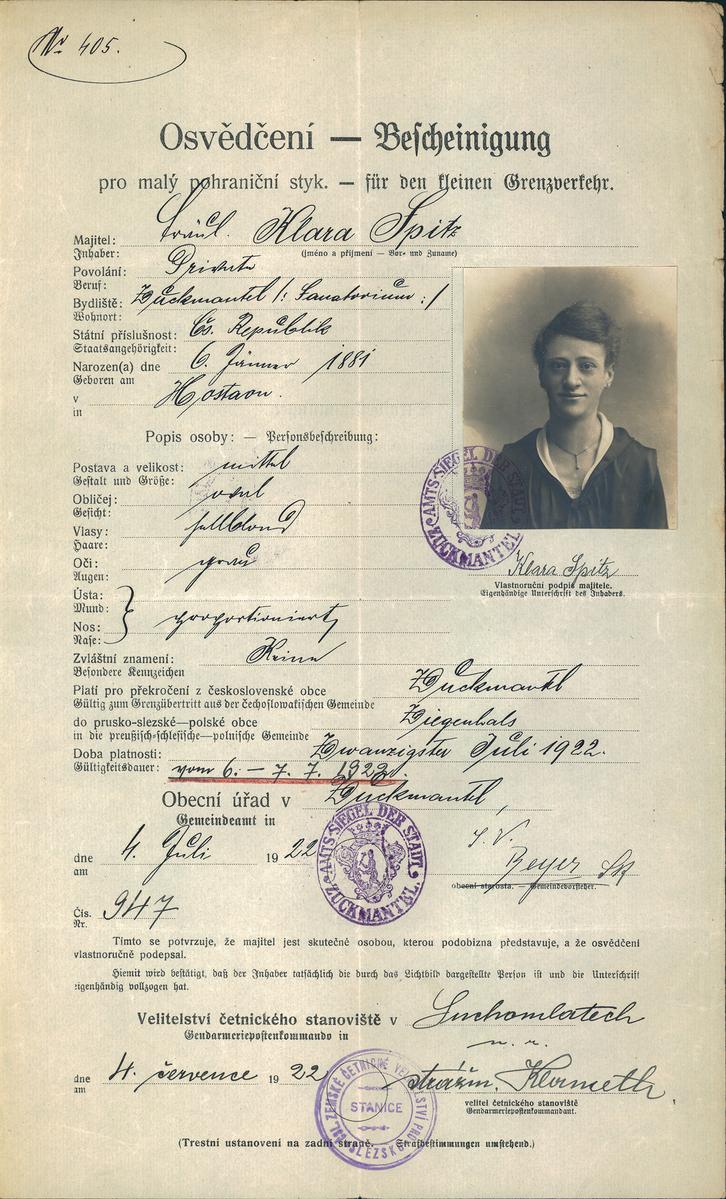 Nr 405.
Osvědčení — Bescheinigung
pro malý pohraniční styk. — für den kleinen Grenzverkehr.
Majitel: Fräul. Klara Spitz
Inhaber: (jméno a příjmení — Vor- und Zuname)
Povolání: Private
Beruf:
Bydliště: Zuckmantel /: Sanatorium :/
Wohnort:
Státní příslušnost: Čs. Republik
Staatsangehörigkeit:
Narozen(a) dne 6. Jänner 1881
Geboren am
v Hostaun.
in
Popis osoby: — Personsbeschreibung:
Postava a velikost: mittel
Gestalt und Größe:
Obličej: oval
Gesicht:
Vlasy: hellblond
Haare:
Oči: grau
Augen:
Ústa:
Mund:
proportioniert
Nos:
Nase:
Zvláštní znamení: Keine
Besondere Kennzeichen
AMTS-SIEGEL DER STADT ZUCKMANTEL
Klara Spitz
Vlastnoruční podpis majitele.
Eigenhändige Unterschrift des Inhabers.
Platí pro překročení z československé obce Zuckmantel
Gültig zum Grenzübertritt aus der čechoslowakischen Gemeinde
do prusko-slezské—polské obce Ziegenhals
in die preußisch-schlesische—polnische Gemeinde
Doba platnosti: Zwanzigster Juli 1922.
Gültigkeitsdauer: vom 6. — 7. 7. 1922.
Obecní úřad v Zuckmantel,
Gemeindeamt in
dne 4. Juli 1922
am
AMTS-SIEGEL DER STADT ZUCKMANTEL.
Beyer
obecní starosta. — Gemeindevorsteher.
Čís. 947
Nr.
Tímto se potvrzuje, že majitel jest skutečně osobou, kterou podobizna představuje, a že osvědčení
vlastnoručně podepsal.
Hiemit wird bestätigt, daß der Inhaber tatsächlich die durch das Lichtbild dargestellte Person ist und die Unterschrift
eigenhändig vollzogen hat.
Velitelství četnického stanoviště v
Gendarmeriepostenkommando in
dne 4. července 1922
am
strážm.
velitel četnického stanoviště
Gendarmeriepostenkommandant.
STANICE
(Trestní ustanovení na zadní straně. — Strafbestimmungen umstehend.)